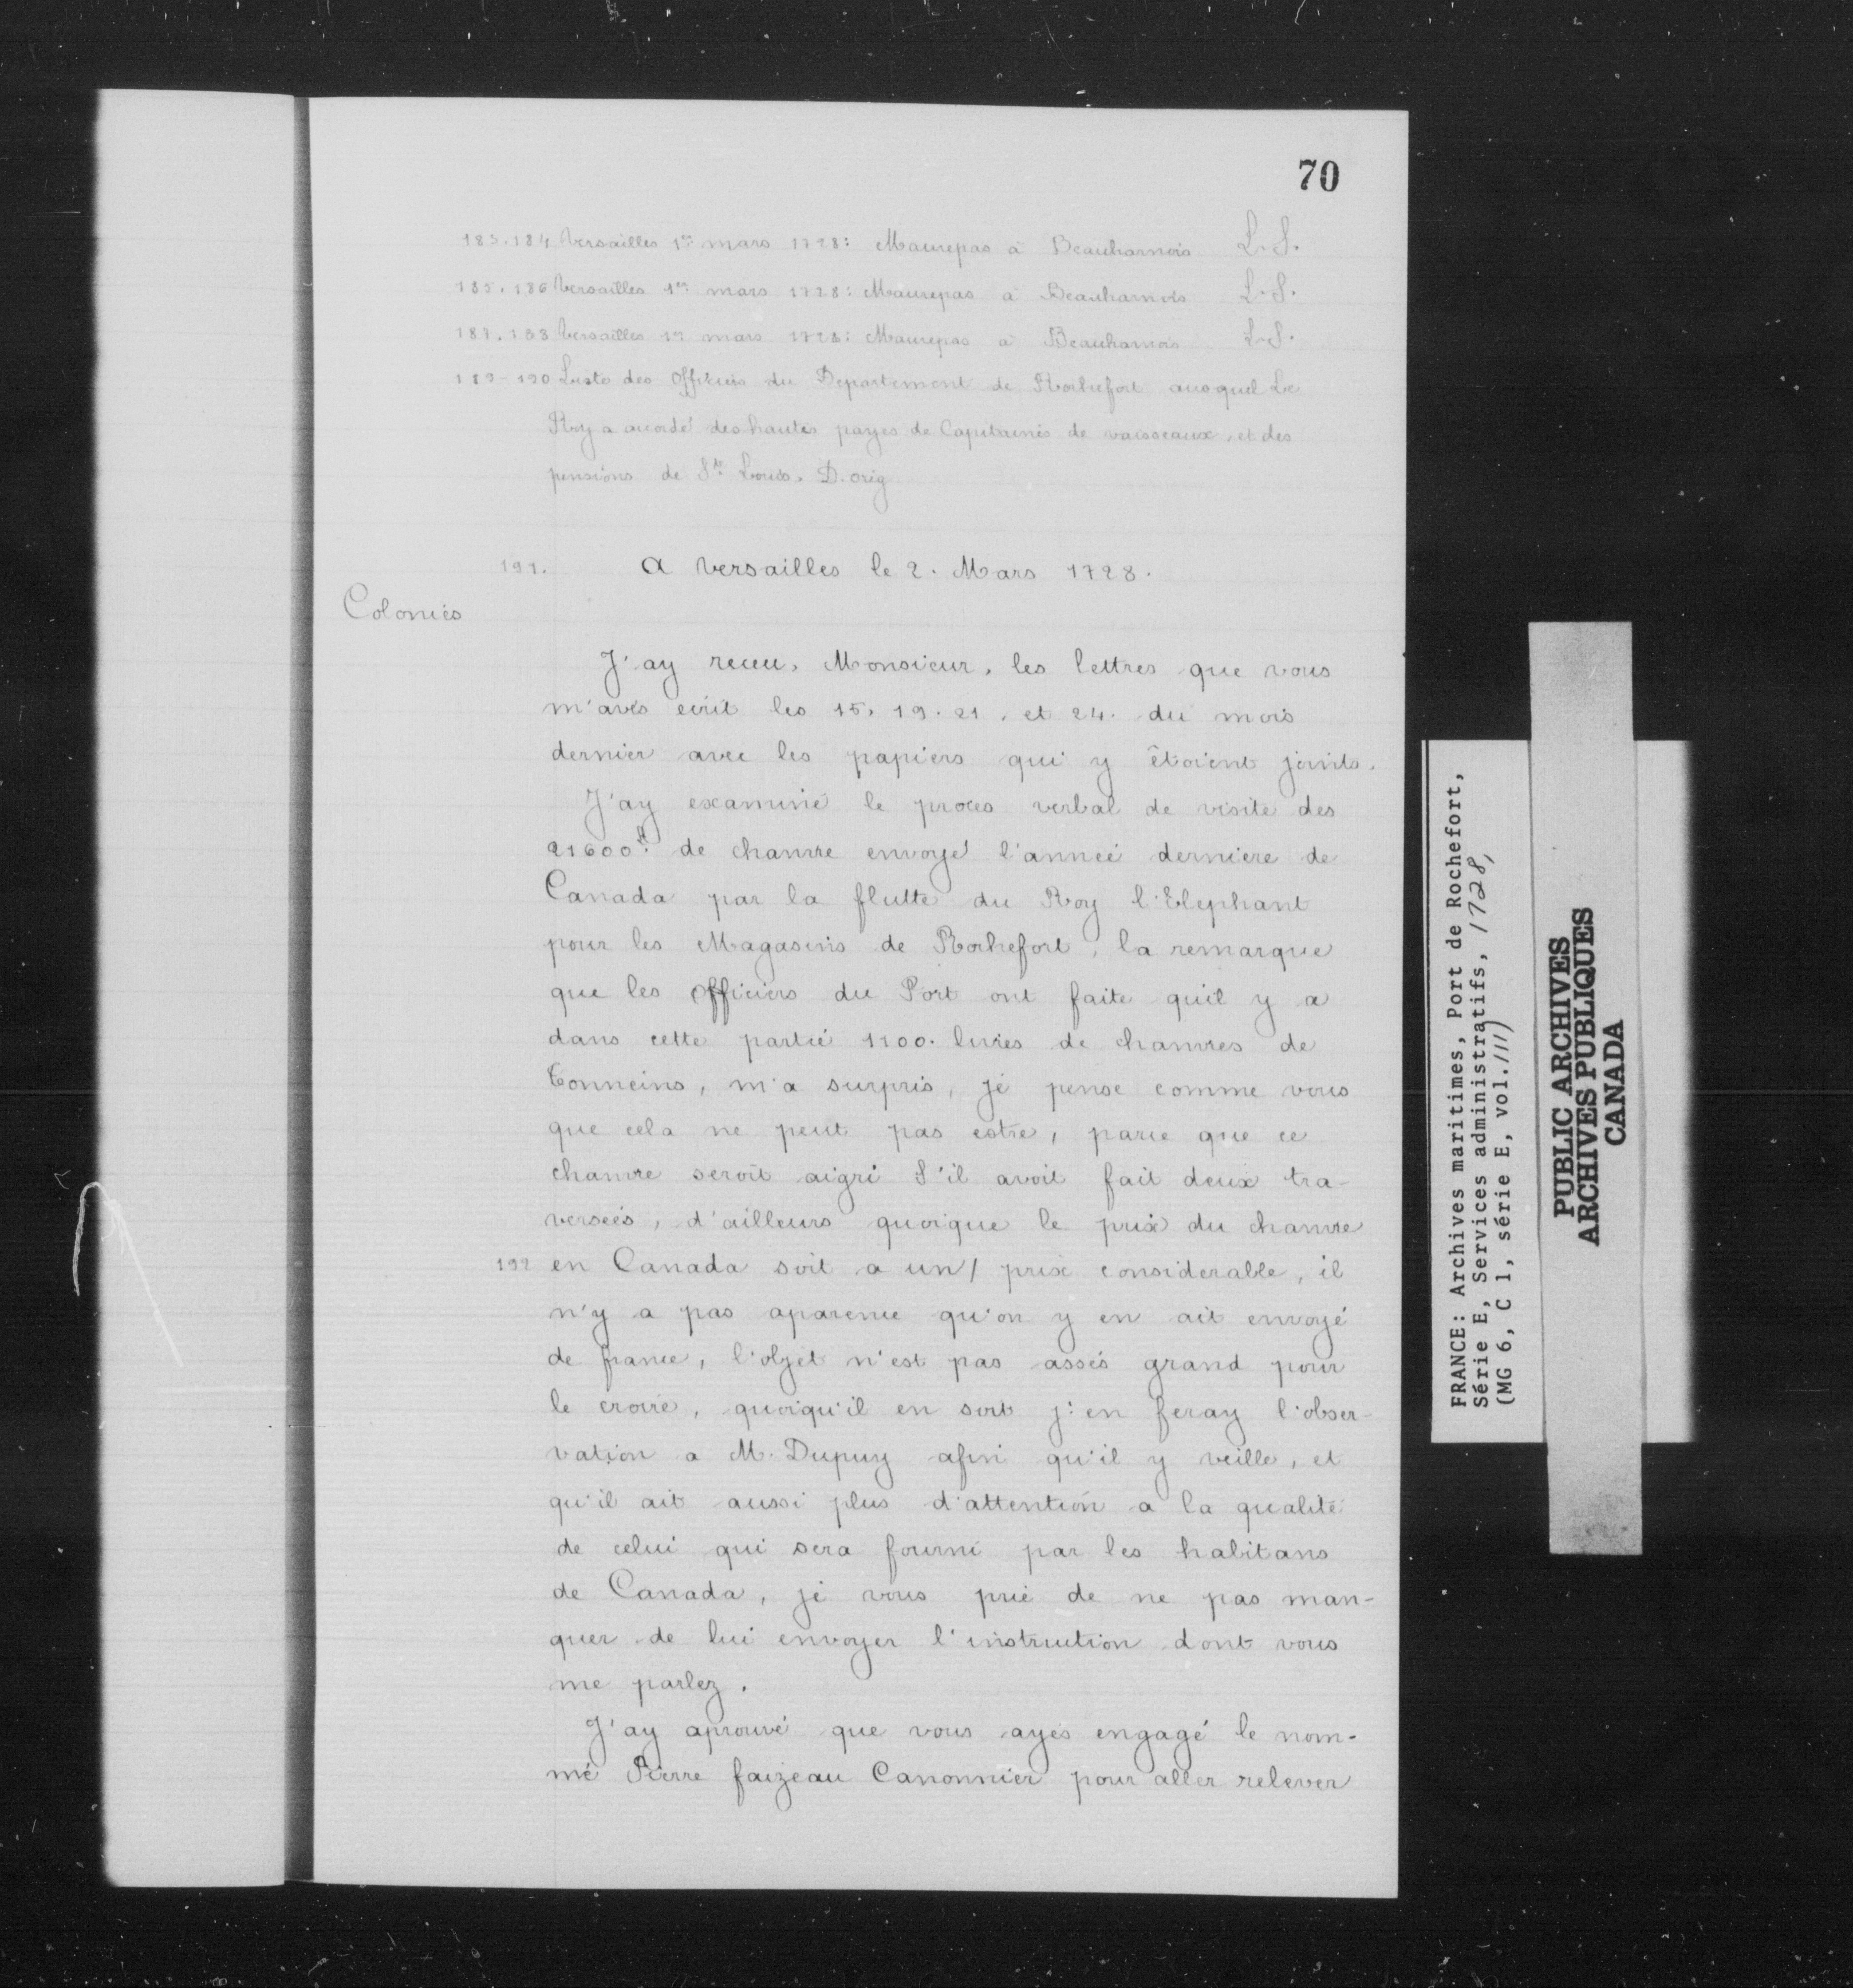 70
183.184 Versailles 1er mars 1728: Maurepas à Beauharnois L.S.
185.186 Versailles 1er mars 1728: Maurepas à Beauharnois L.S.
187.188 Versailles 1er mars 1728: Maurepas à Beauharnois L.S.
189-190 Liste des Officiers du Departement de Rochefort ausquel Le
Roy a accordé des hautes payes de Capitaines de vaisseaux, et des
pensions de St. Louis. D. orig
191. A Versailles le 2. Mars 1728.
Colonies
J'ay receu, Monsieur, les lettres que vous
m'avés ecrit les 15. 19. 21. et 24. du mois
dernier avec les papiers qui y êtoient joints.
J'ay examiné le proces verbal de visite des
21600# de chanvre envoyé l'année derniere de
Canada par la flutte du Roy l'Elephant
pour les Magasins de Rochefort, la remarque
que les Officiers du Port ont faite qu'il y a
dans cette partie 1100. livres de chanvres de
Tonneins, m'a surpris, je pense comme vous
que cela ne peut pas estre, parce que ce
chanvre seroit aigri S'il avoit fait deux tra-
versées, d'ailleurs quoique le prix du chanvre
192 en Canada soit a un/ prix considerable, il
n'y a pas aparence qu'on y en ait envoyé
de france, l'objet n'est pas assés grand pour
le croire, quoiqu'il en soit j'en feray l'obser-
vation a M. Dupuy afin qu'il y veille, et
qu'il ait aussi plus d'attention a la qualité
de celui qui sera fourni par les habitans
de Canada, je vous prie de ne pas man-
quer de lui envoyer l'instruction dont vous
me parlez.
J'ay aprouvé que vous ayés engagé le nom-
mé Pierre faizeau Canonnier pour aller relever
FRANCE: Archives maritimes, Port de Rochefort,
Série E, Services administratifs, 1728,
(MG 6, C 1, série E, vol. 111)
PUBLIC ARCHIVES
ARCHIVES PUBLIQUES
CANADA